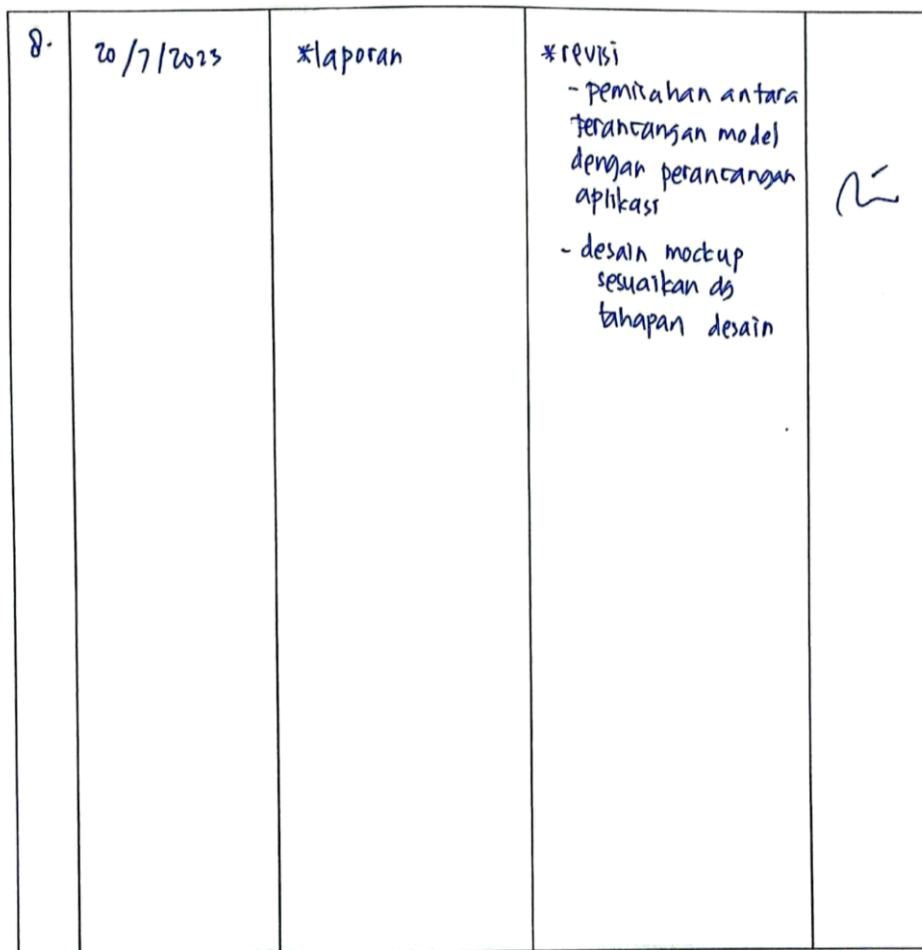 8.
20/7/2023
*laporan
*revisi
- pemisahan antara
perancangan model
dengan perancangan
aplikasi
- desain mockup
sesuaikan dg
tahapan desain